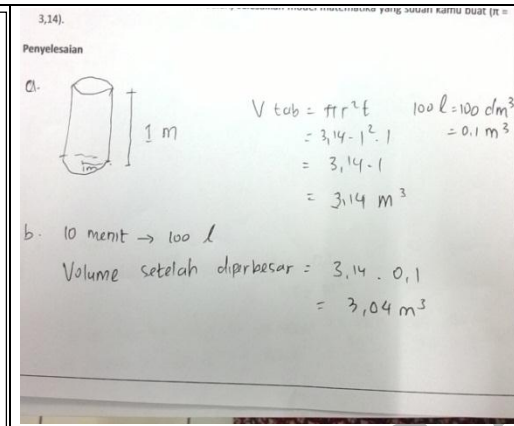 yang sudah kamu buat (π =
3,14).
Penyelesaian
a.
1 m
1m
V tab = πr²t
= 3,14 - 1². 1
= 3,14 . 1
= 3,14 m³
100 l = 100 dm³
= 0.1 m³
b. 10 menit → 100 l
Volume setelah diperbesar = 3,14 . 0,1
= 3,04 m³